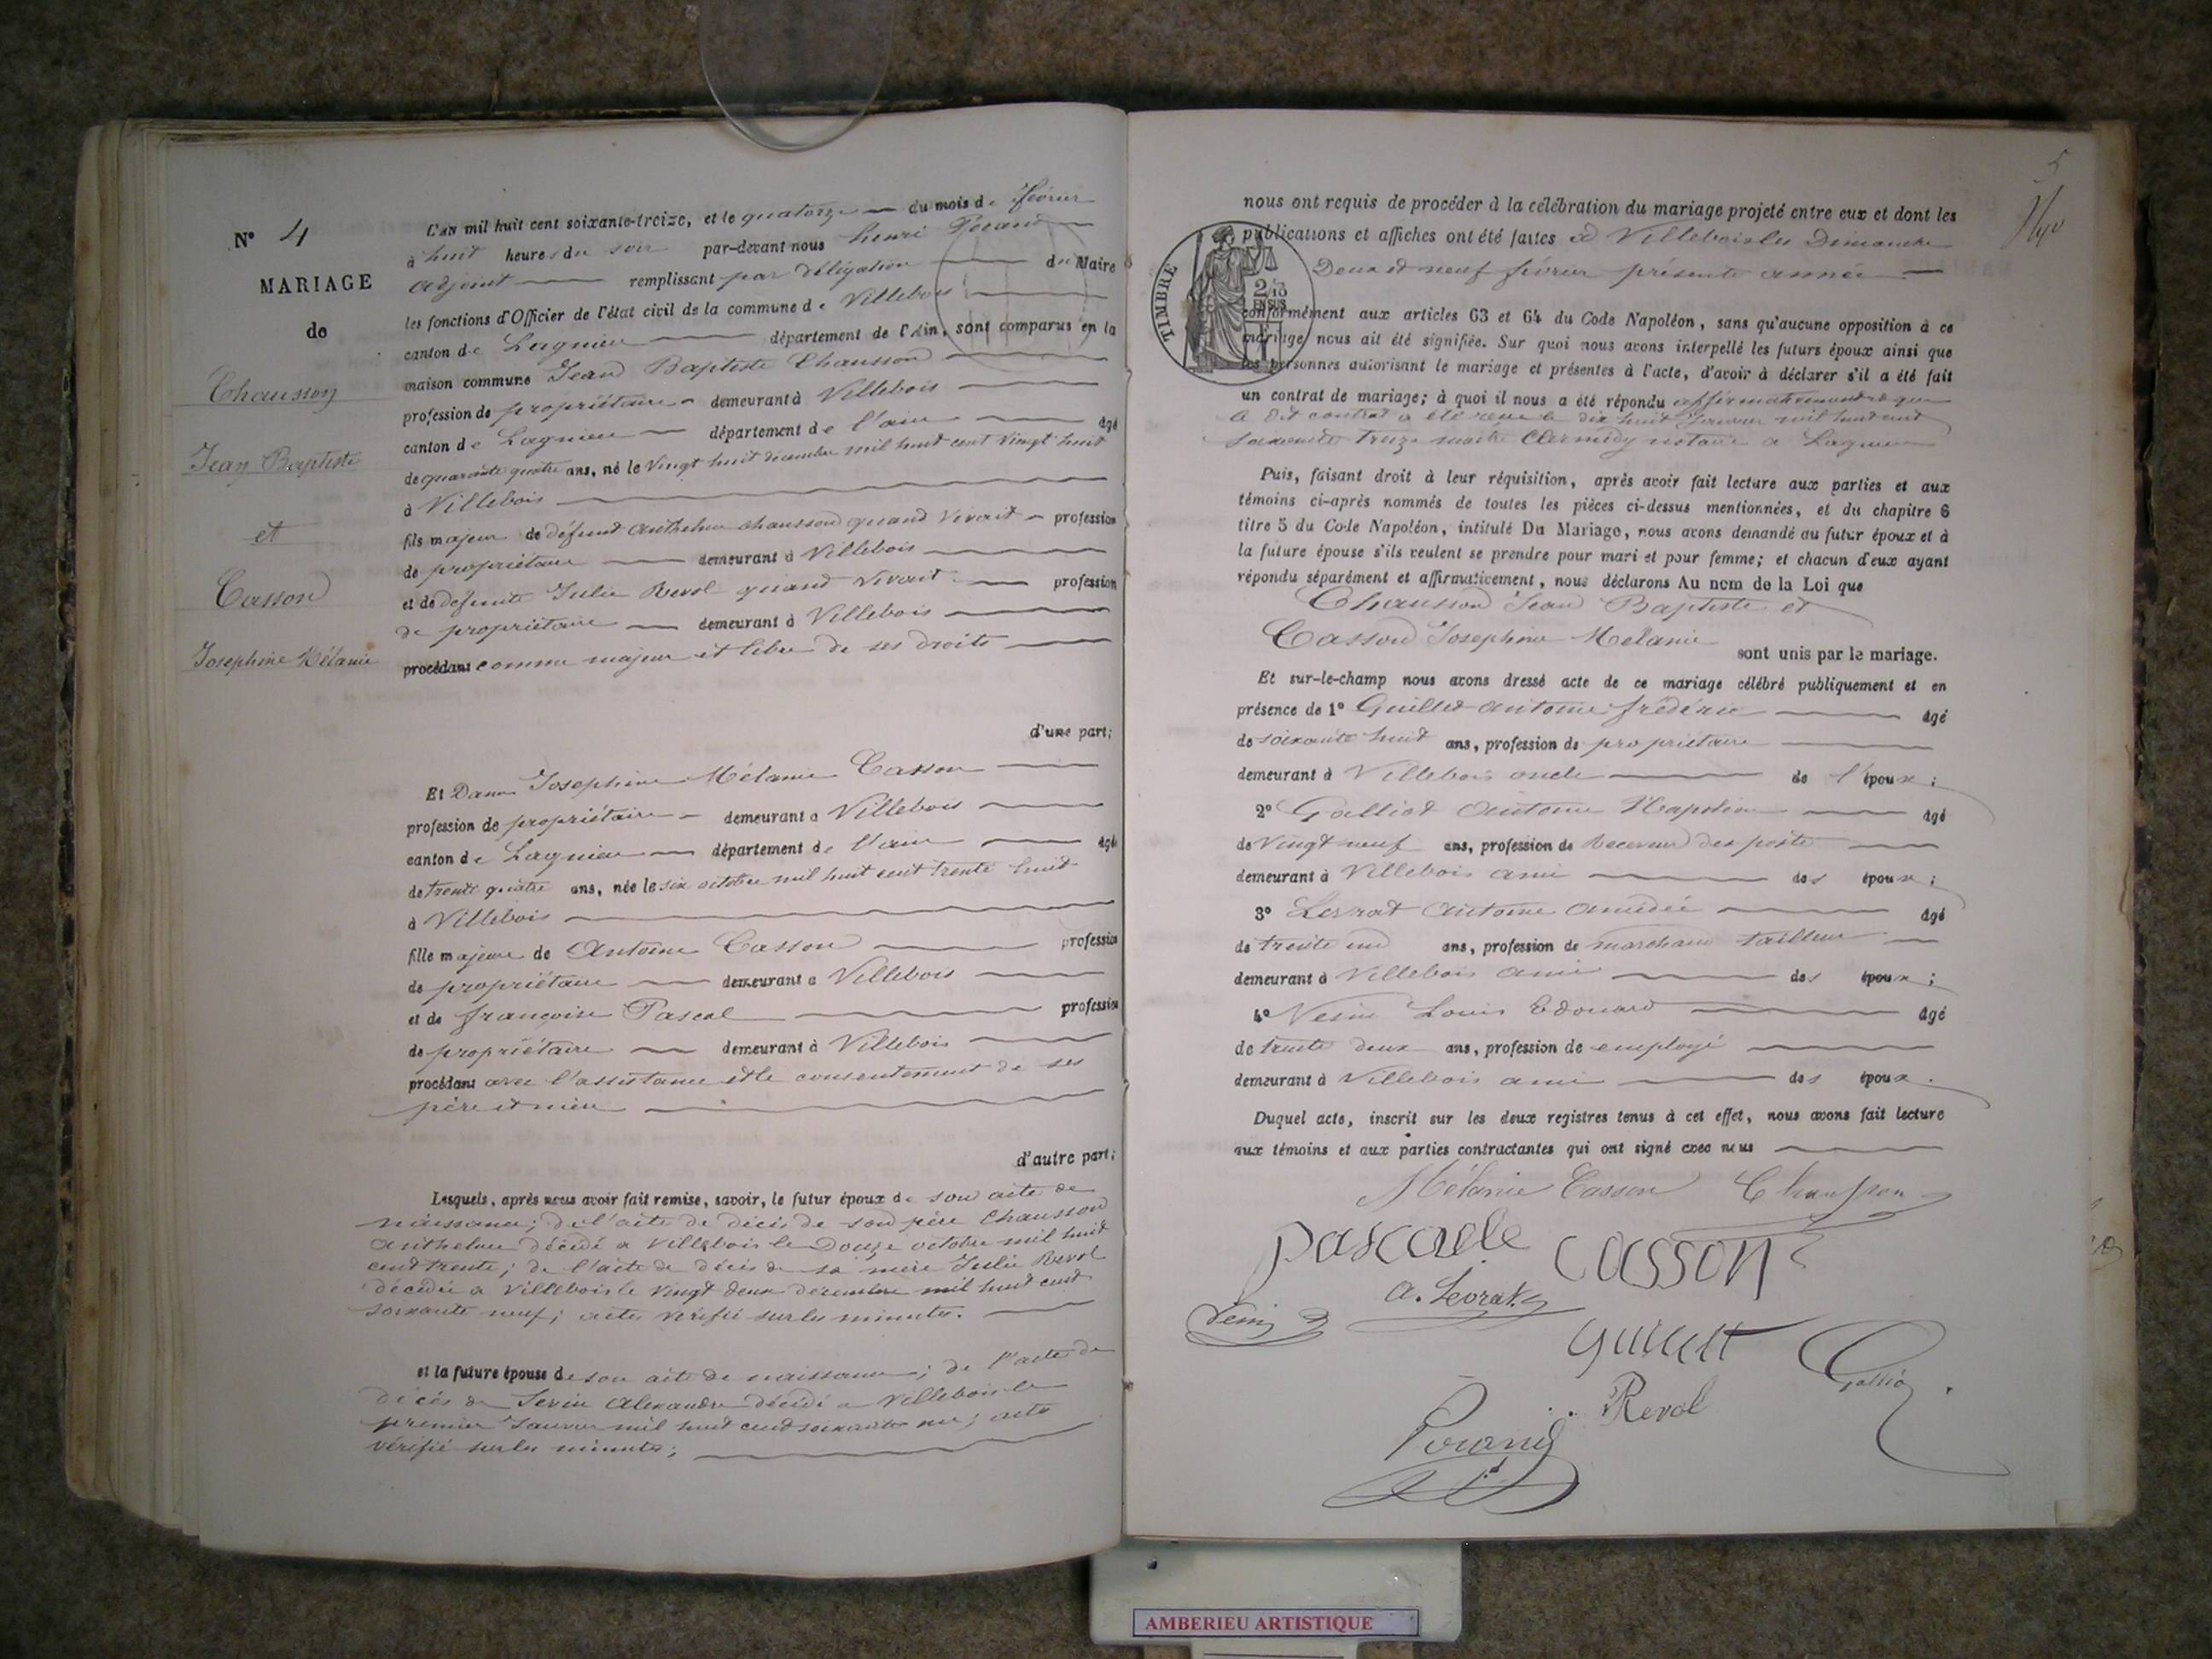 N° 4
MARIAGE
de
Chausson
Jean Baptiste
et
Casson
Josephine Mélanie
L'an mil huit cent soixante-treize, et le quatorze du mois de février
à huit heures du soir par-devant nous henri
adjoint remplissant par déligation du Maire
les fonctions d'Officier de l'état civil de la commune de Villebois
canton de Lagnieu département de l'Ain, sont comparus en la
maison commune Jean Baptiste Chausson
profession de propriétaire demeurant à Villebois
canton de Lagnieu département de l'ain âgé
de quarante quatre ans, né le Vingt huit décembre mil huit cent vingt huit
à Villebois
fils majeur de défunt Anthelme Chausson quand vivait profession
de propriétaire demeurant à Villebois
et de défunte Julie Revol quand vivait profession
de propriétaire demeurant à Villebois
procédant comme majeur et libre de ses droits
d'une part;
Et Dame Josephine Mélanie Casson
profession de propriétaire demeurant a Villebois
canton de Lagnieu département de l'ain âgé
de trente quatre ans, née le six octobre mil huit cent trente huit
à Villebois
fille majeure de Antoine Casson profession
de propriétaire demeurant a Villebois
et de françoise Pascal profession
de propriétaire demeurant à Villebois
procédant avec l'assistance et le consentement de ses
père et mère
d'autre part;
Lesquels, après nous avoir fait remise, savoir, le futur époux de son acte de
naissance; de l'acte de décès de son père Chausson
Anthelme décédé a Villebois le Douze octobre mil huit
cent trente; de l'acte de décès de sa mère Julie Revol
décédée a Villebois le vingt deux décembre mil huit cent
soixante neuf; actes vérifié sur les minutes.
et la future épouse de son acte de naissance; de l'acte de
décès de Alexandre décédé a Villebois le
premier Janvier mil huit cent soixante ; acte
vérifié sur les minutes;
5
nous ont requis de procéder à la célébration du mariage projeté entre eux et dont les
publications et affiches ont été faites à Villebois les Dimanche
Deux et neuf février présente année
TIMBRE
2/10
EN SUS
conformément aux articles 63 et 64 du Code Napoléon, sans qu'aucune opposition à ce
mariage nous ait été signifiée. Sur quoi nous avons interpellé les futurs époux ainsi que
les personnes autorisant le mariage et présentes à l'acte, d'avoir à déclarer s'il a été fait
un contrat de mariage; à quoi il nous a été répondu affirmativement que
contrat a été le dix huit Janvier mil huit cent
soixante treize maître Clermidy notaire a Lagnieu
Puis, faisant droit à leur réquisition, après avoir fait lecture aux parties et aux
témoins ci-après nommés de toutes les pièces ci-dessus mentionnées, et du chapitre 6
titre 5 du Code Napoléon, intitulé Du Mariage, nous avons demandé au futur époux et à
la future épouse s'ils veulent se prendre pour mari et pour femme; et chacun d'eux ayant
répondu séparément et affirmativement, nous déclarons Au nom de la Loi que
Chausson Jean Baptiste et
Casson Josephine Mélanie
sont unis par le mariage.
Et sur-le-champ nous avons dressé acte de ce mariage célébré publiquement et en
présence de 1° Guillet Antoine frédéric âgé
de soixante huit ans, profession de propriétaire
demeurant à Villebois oncle de l'époux;
2° Galliot Antoine Napoléon âgé
de Vingt neuf ans, profession de Receveur des poste
demeurant à Villebois ami des époux;
3° Levrat Antoine Amédée âgé
de trente un ans, profession de marchand tailleur
demeurant à Villebois ami des époux;
4° Louis Edouard âgé
de trente deux ans, profession de employé
demeurant à Villebois ami des époux.
Duquel acte, inscrit sur les deux registres tenus à cet effet, nous avons fait lecture
aux témoins et aux parties contractantes qui ont signé avec nous
Mélanie Casson Chausson
pascalle Casson
a. Levrat
guillett
Revol
AMBERIEU ARTISTIQUE